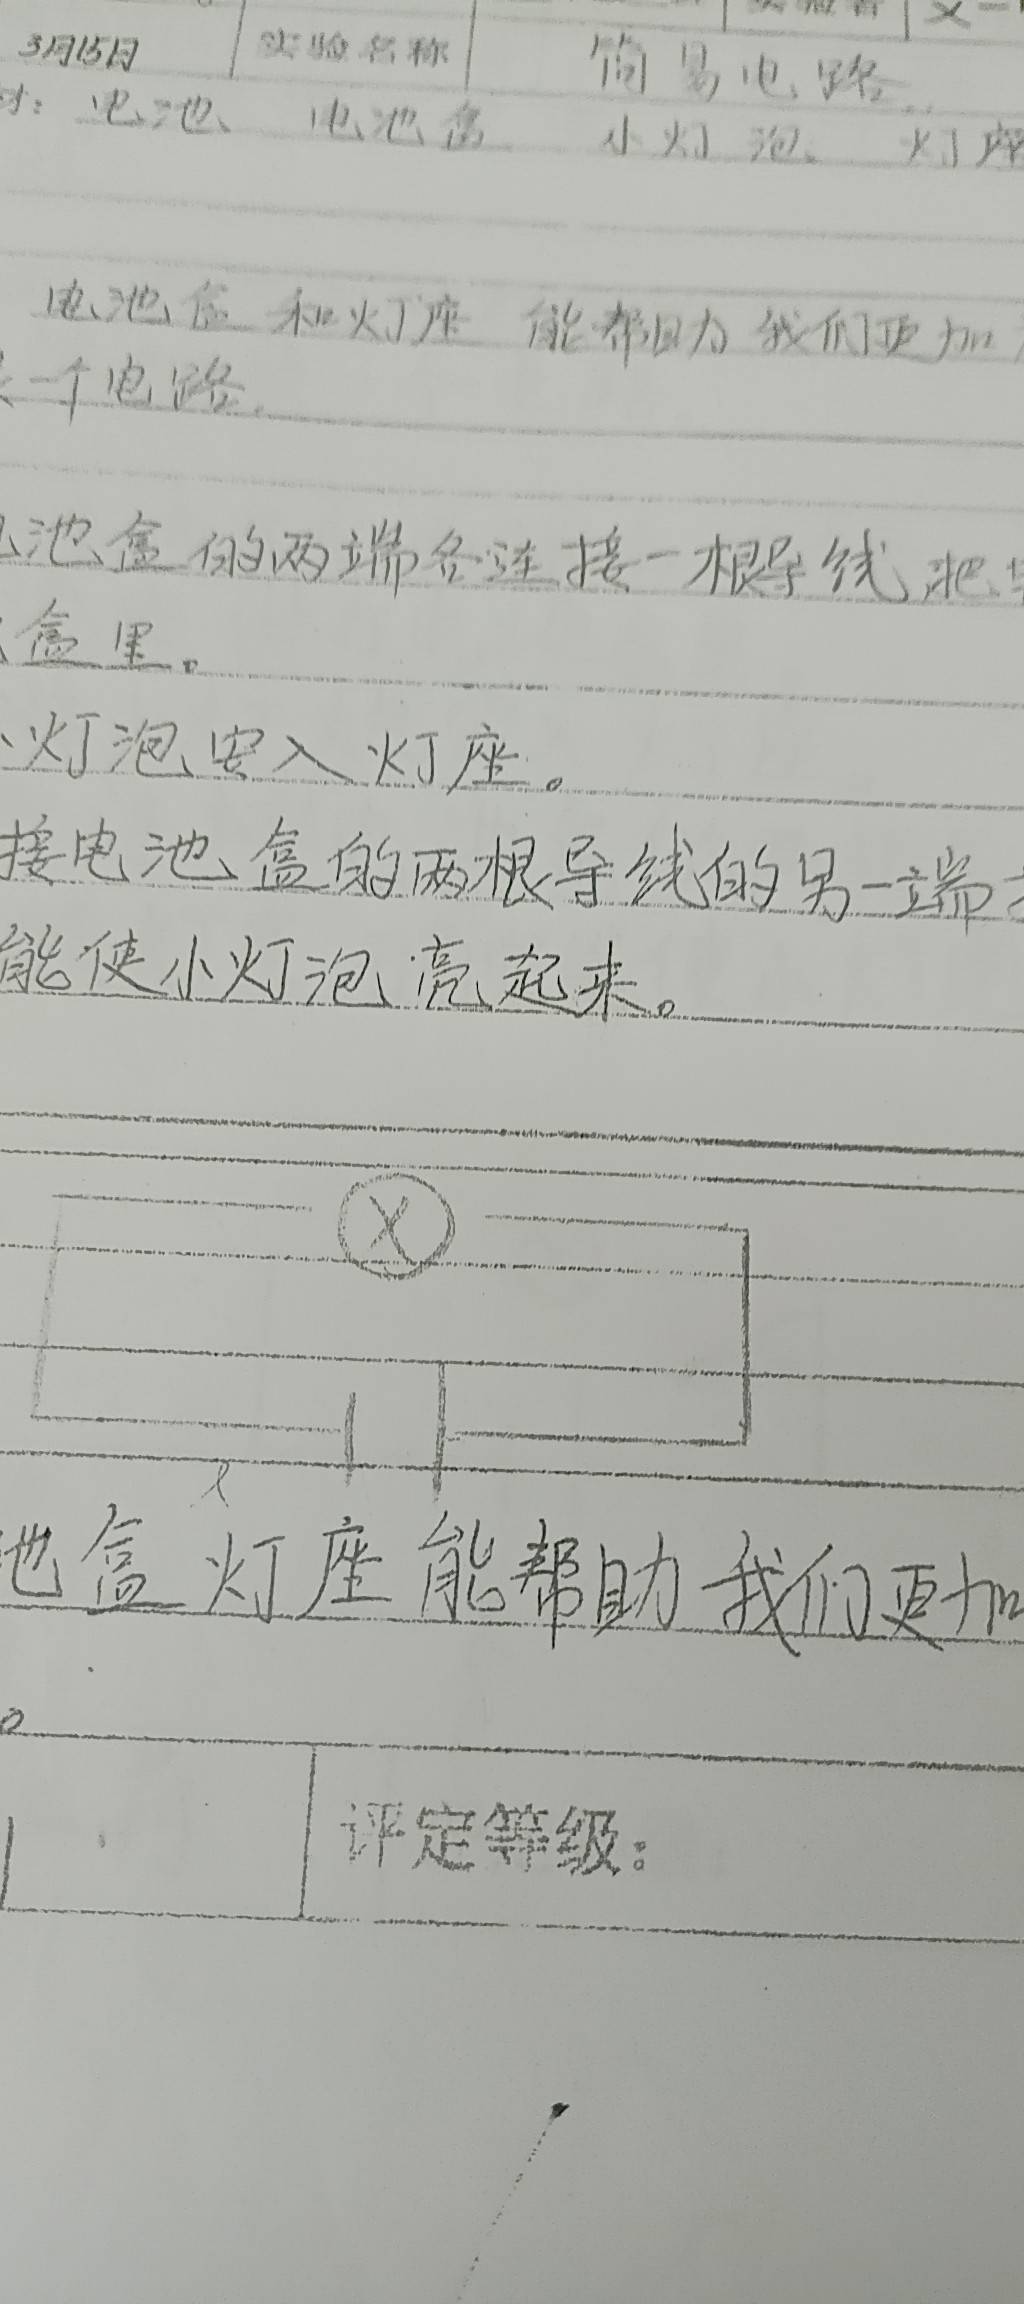 3月15日 实验名称 简易电路
电池、电池盒 小灯泡、灯座
电池盒和灯座能帮助我们更加
一个电路.
池盒的两端各连接一根导线,把
盒里。
灯泡安入灯座。
接电池盒的两根导线的另一端
能使小灯泡亮起来。
池盒灯座能帮助我们更加
。
评定等级: